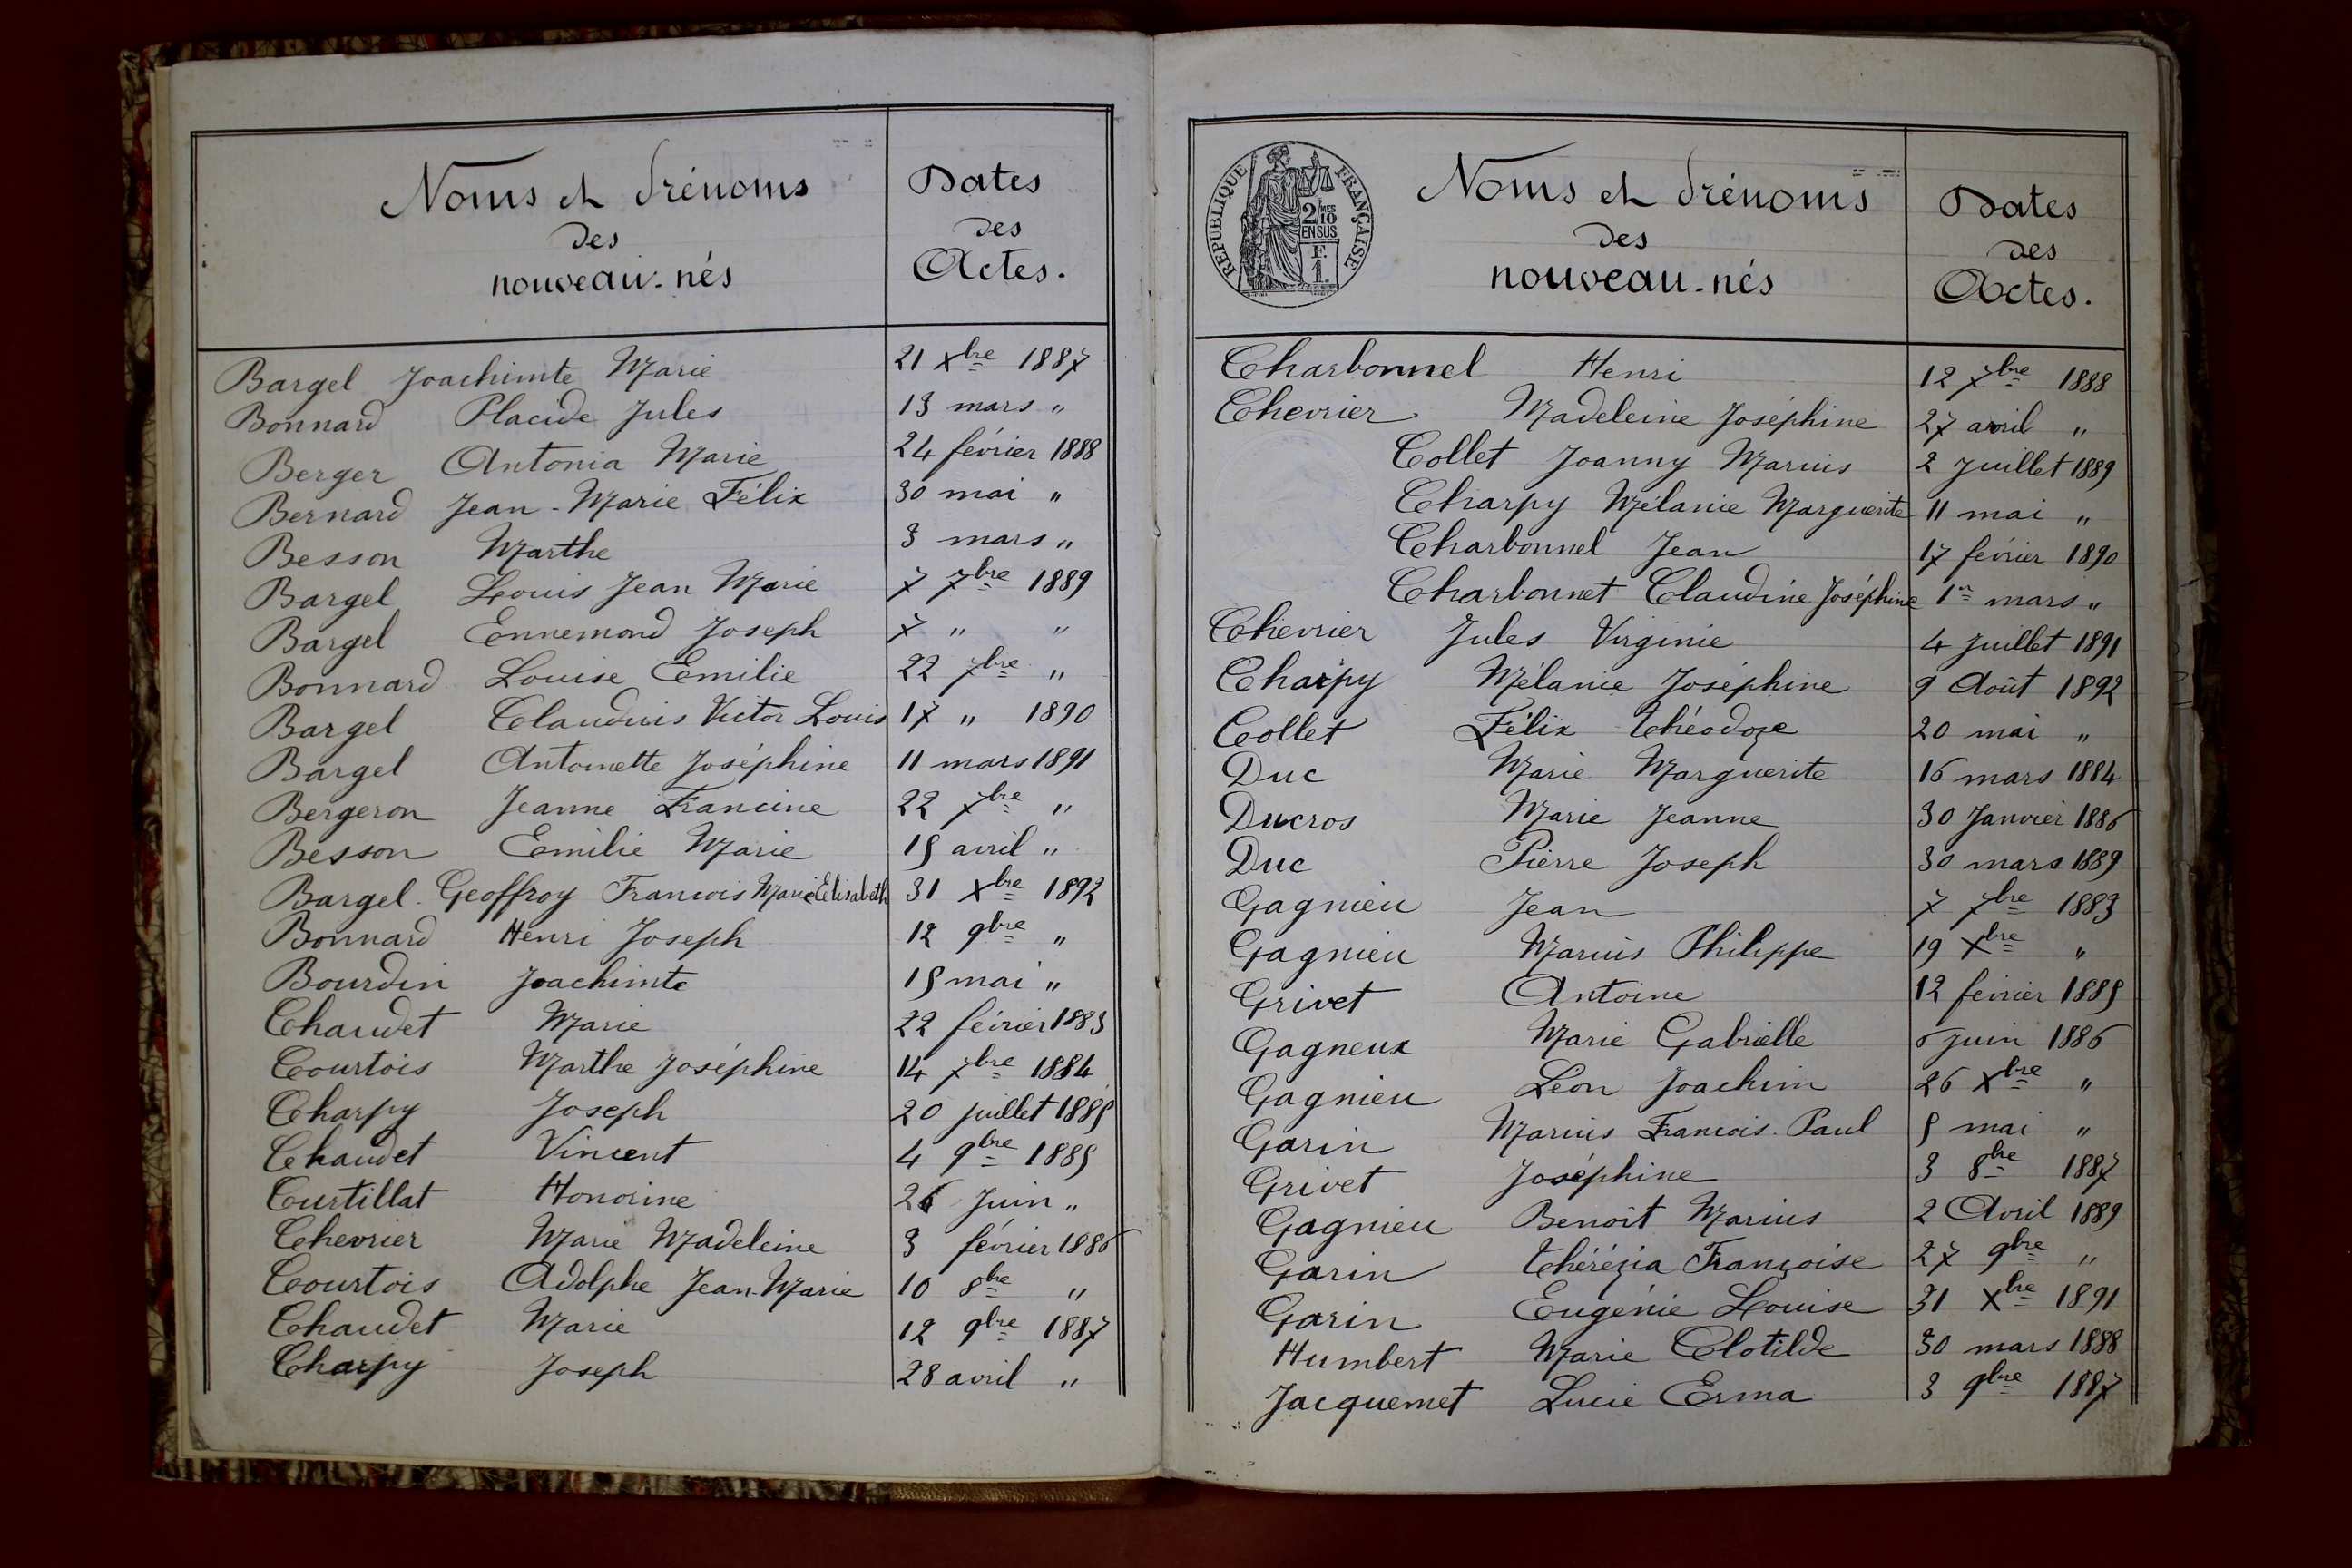 Noms et Prénoms
des
nouveau-nés
Dates
des
Actes.
Bargel Joachimte Marie 21 Xbre 1887
Bonnard Placide Jules 13 mars "
Berger Antonia Marie 24 février 1888
Bernard Jean-Marie Félix 30 mai "
Besson Marthe 3 mars "
Bargel Louis Jean Marie 7 7bre 1889
Bargel Ennemond Joseph 7 " "
Bonnard Louise Emilie 22 7bre "
Bargel Claudius Victor Louis 17 " 1890
Bargel Antoinette Joséphine 11 mars 1891
Bergeron Jeanne Francine 22 7bre "
Besson Emilie Marie 15 avril "
Bargel-Geoffroy Francois Marie Elisabeth 31 Xbre 1892
Bonnard Henri Joseph 12 9bre "
Bourdin Joachimte 15 mai "
Chaudet Marie 22 février 1883
Courtois Marthe Joséphine 14 7bre 1884
Charpy Joseph 20 juillet 1885
Chaudet Vincent 4 9bre 1885
Curtillat Honorine 26 Juin "
Chevrier Marie Madeleine 3 février 1886
Courtois Adolphe Jean-Marie 10 8bre "
Chaudet Marie 12 9bre 1887
Charpy Joseph 28 avril "
RÉPUBLIQUE FRANÇAISE
2/10 MES
EN SUS
F.
1.
Noms et Prénoms
des
nouveau-nés
Dates
des
Actes.
Charbonnel Henri 12 7bre 1888
Chevrier Madeleine Joséphine 27 avril "
Collet Joanny Marius 2 Juillet 1889
Charpy Mélanie Marguerite 11 mai "
Charbonnel Jean 17 février 1890
Charbonnet Claudine Joséphine 1er mars "
Chevrier Jules Virginie 4 Juillet 1891
Charpy Mélanie Joséphine 9 Août 1892
Collet Félix Théodoze 20 mai "
Duc Marie Marguerite 16 mars 1884
Ducros Marie Jeanne 30 Janvier 1886
Duc Pierre Joseph 30 mars 1889
Gagnieu Jean 7 7bre 1883
Gagnieu Marius Philippe 19 Xbre "
Grivet Antoine 12 février 1885
Gagneux Marie Gabrielle 6 Juin 1886
Gagnieu Léon Joachim 26 Xbre "
Garin Marius Francois-Paul 5 mai "
Grivet Joséphine 3 8bre 1887
Gagnieu Benoît Marius 2 Avril 1889
Garin Thérézia Françoise 27 9bre "
Garin Eugénie Louise 31 Xbre 1891
Humbert Marie Clotilde 30 mars 1888
Jacquemet Lucie Erma 3 9bre 1887